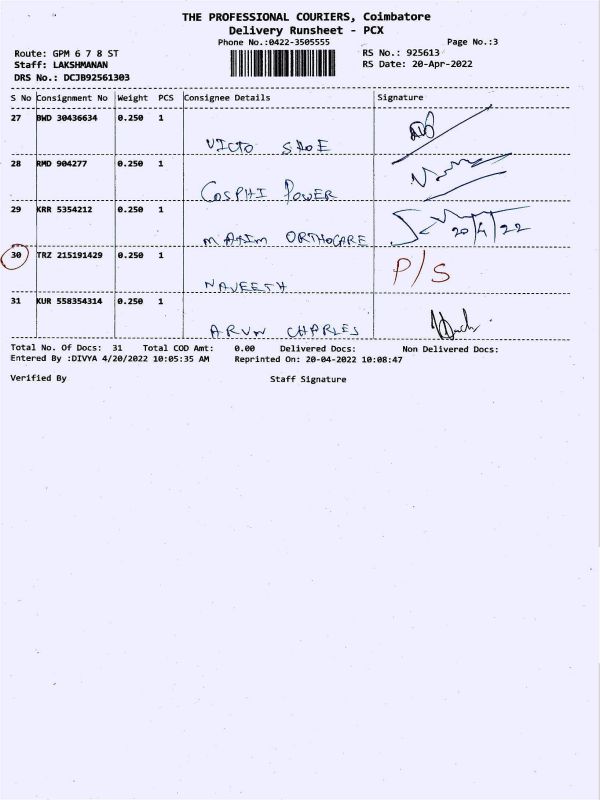 THE PROFESSIONAL COURIERS, Coimbatore
Delivery Runsheet - PCX
Phone No.:0422-3505555 Page No.:3
Route: GPM 6 7 8 ST RS No.: 925613
Staff: LAKSHMANAN RS Date: 20-Apr-2022
DRS No.: DCJB92561303
S No Consignment No Weight PCS Consignee Details Signature
27 BWD 30436634 0.250 1
VICTO SHOE
28 RMD 904277 0.250 1
COSPHI POWER
29 KRR 5354212 0.250 1
MAXIM ORTHOCARE 20/4/22
30 TRZ 215191429 0.250 1 P/S
NAVEETH
31 KUR 558354314 0.250 1
ARUN CHARLES
Total No. Of Docs: 31 Total COD Amt: 0.00 Delivered Docs: Non Delivered Docs:
Entered By :DIVYA 4/20/2022 10:05:35 AM Reprinted On: 20-04-2022 10:08:47
Verified By Staff Signature